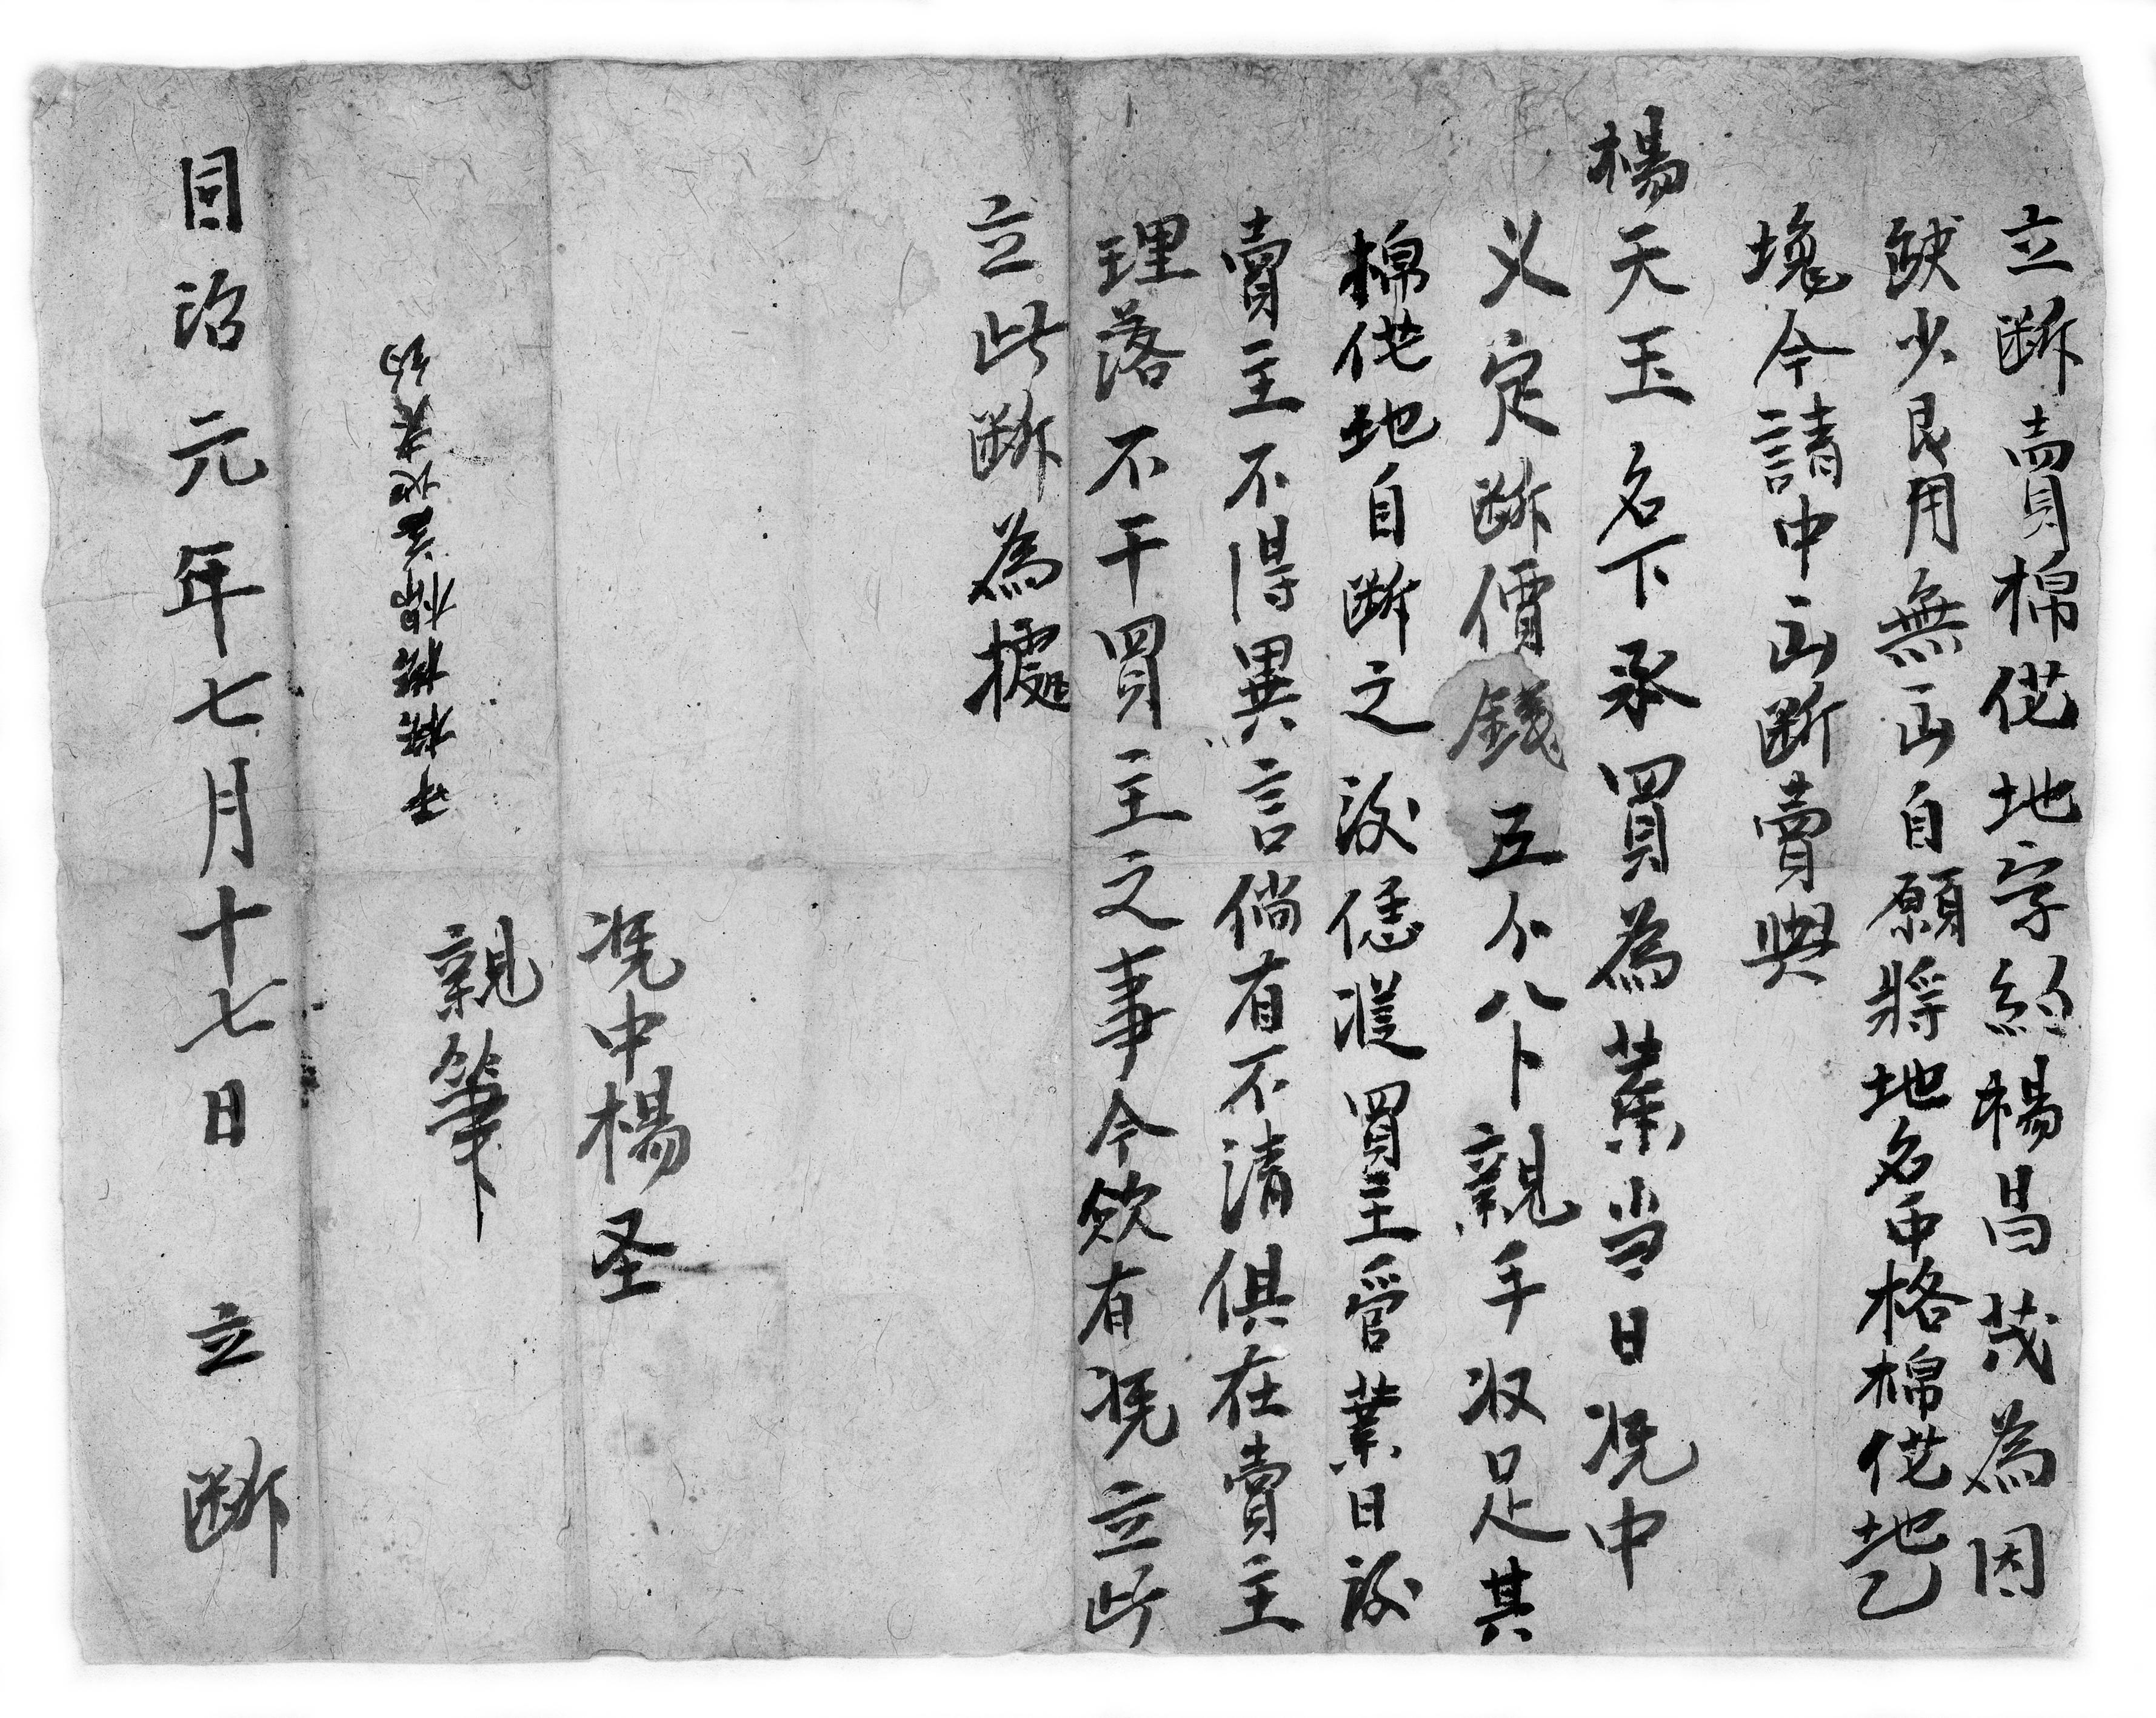 立断賣棉花地字約楊昌茂為因
缺少艮用無出自願將地名中格棉花地乙
塊今請中出断賣與
楊天玉名下承買為業当日凴中
义定断價錢五仟八卜親手収足其
棉花地自断之後任從買主管業日後
賣主不得異言倘有不清俱在賣主
理落不干買主之事今欲有凴立此
立此断為據
凴中楊圣
親筆
同治元年七月十七日 立 断